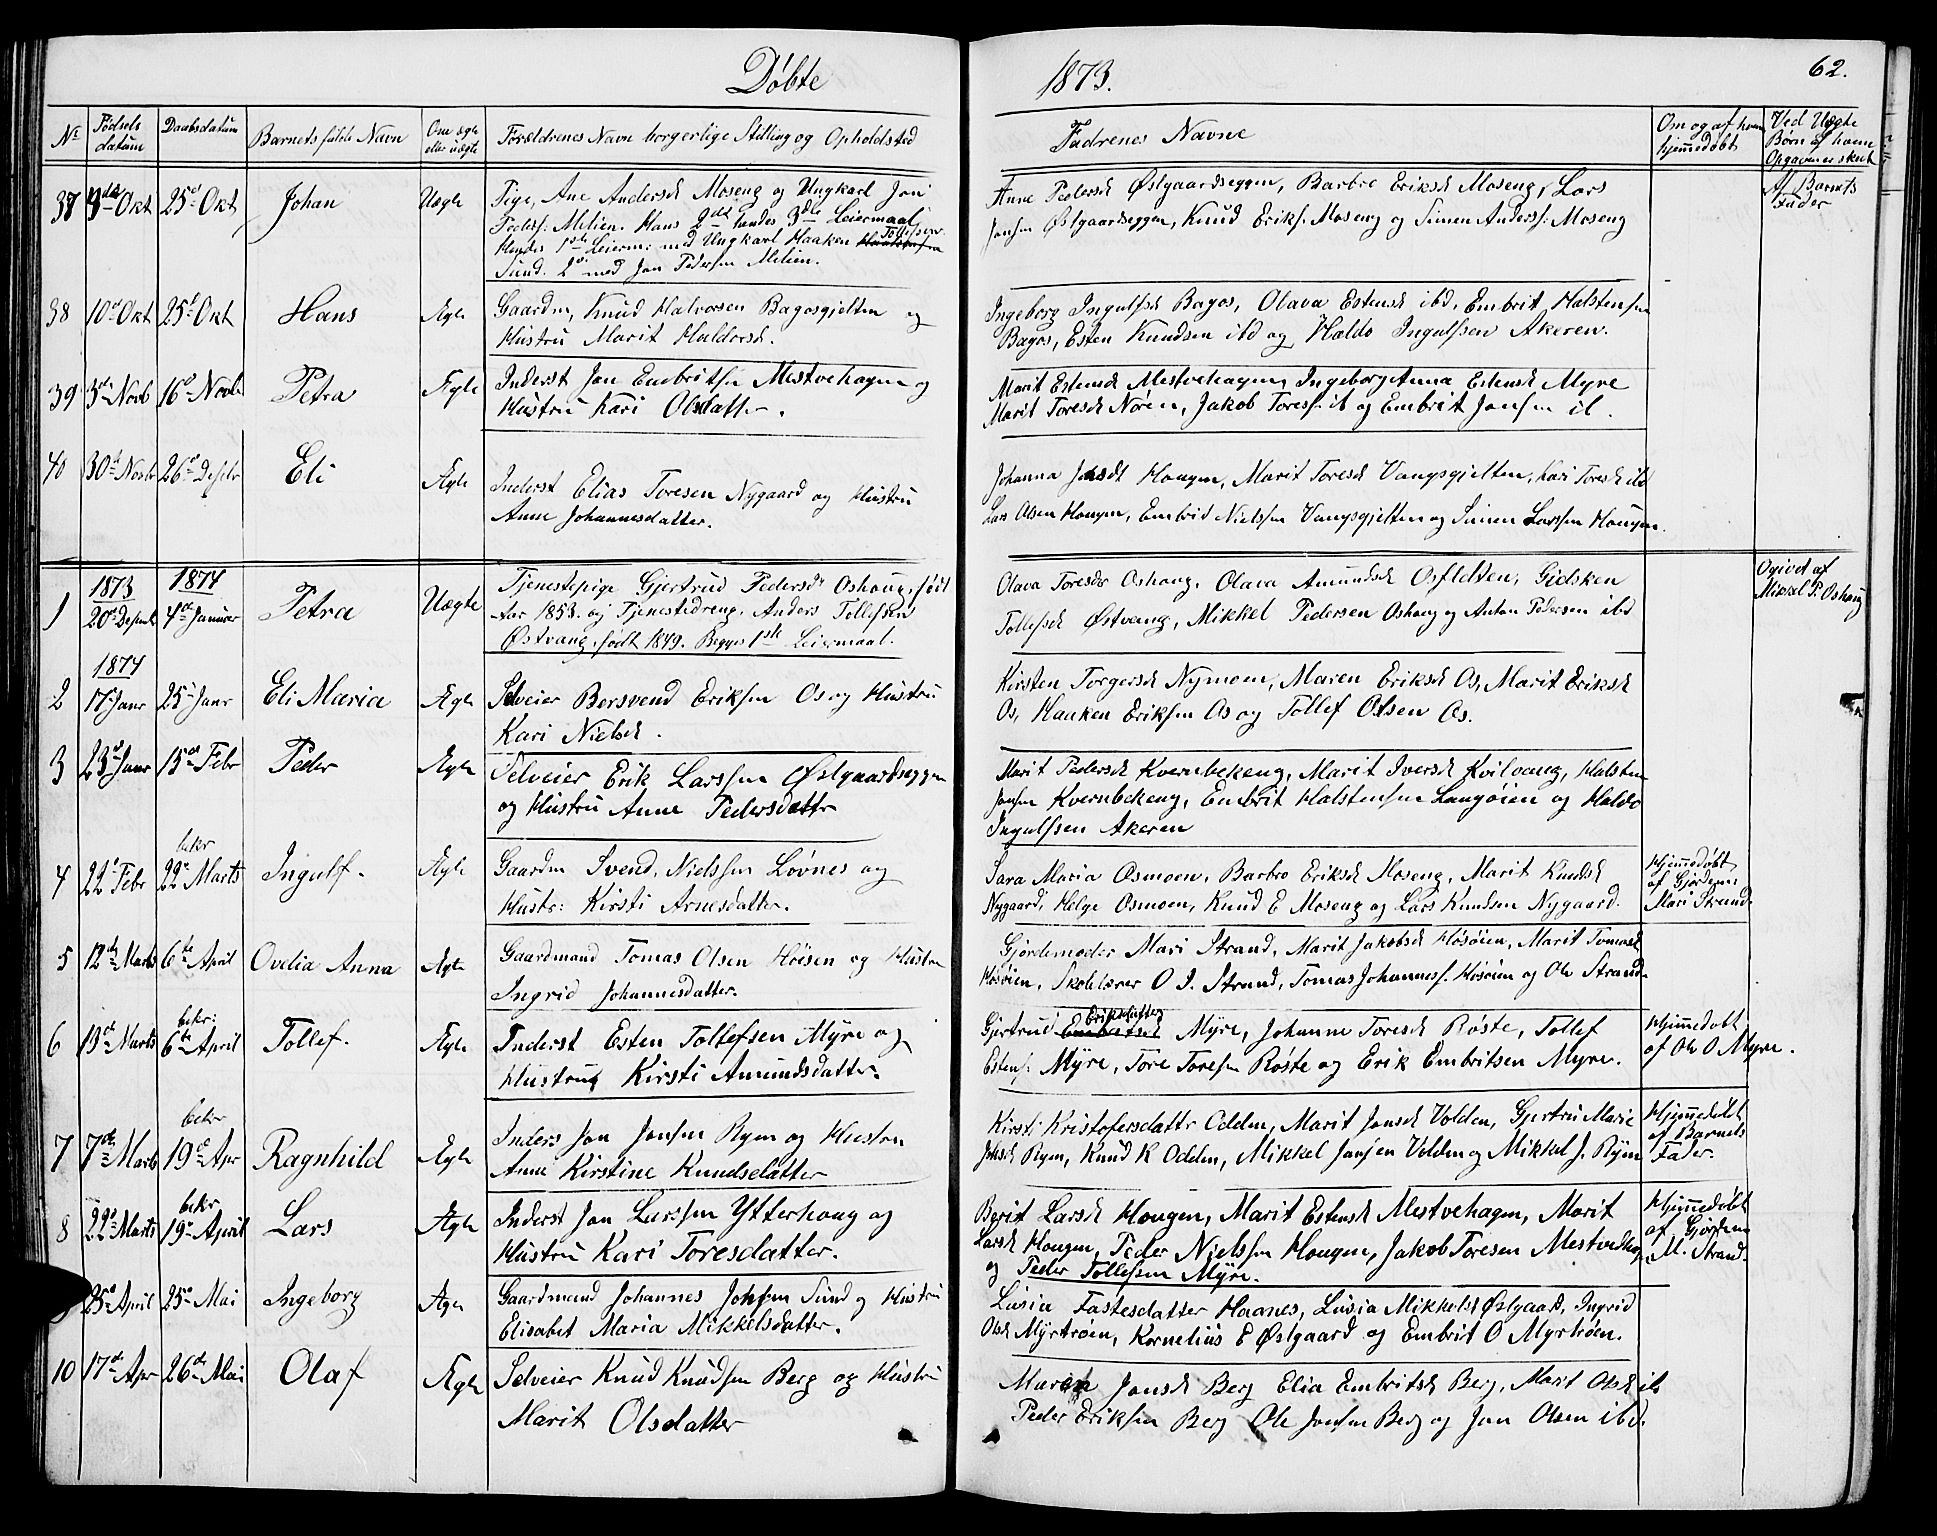 Døbte
1873.
62.
No Fødsels datum Daabsdatum Barnets fulde Navn Om ægte eller uægte Forældrenes Navne borgerlige Stilling og Opholdsted
Fadrenes Navne
Om og af hvem hjemmedøbt
Ved Uægte Børn af hvem Opgaven er skeet
37 3die Okt 25d Okt Johan Uægte Pige, Ane Andersd Moseng og Ungkarl Jon
Peders: Melien. Hans 2det hendes 3die Leiermaal.
Hendes 1ste Leierm: med Ungkarl Haaken Tollefsen
Sund. 2d med Jon Pedersen Melien.
Anne Pedersd Østgaardseggen, Barbro Eriksd Moseng, Lars
Jonsen Østgaardseggen, Knud Eriks. Moseng og Simen Anders: Moseng
Af Barnets
Fader
38 10d Okt 25d Okt Hans Ægte Gaardm. Knud Halvorsen Bagosgjelten og
Hustru Marit Haldorsd.
Ingeborg Ingulfsd Bagos, Olava Estensd ibd, Embrit Halstensen
Bagos, Esten Knudsen ibd og Haldo Ingulfsen Akeren.
39 3die Novb 16d Novbr Petra Ægte Inderst Jon Embritsen Mestvehagen og
Hustru Kari Olsdatter.
Marit Estensd Mestvehagen, Ingeborg Anna Estensd Myre
Marit Toresd Noren, Jakob Toress. ib og Embrit Jonsen ib.
40 30te Novbr 26d Desbr Eli Ægte Inderst Elias Toresen Nygaard og Hustru
Anne Johannesdatter.
Johanna Jonsdt Hougen, Marit Toresd Vangsgjelten, Kari Toresd ibd
Lars Olsen Hougen, Embrit Nielssen Vangsgjelten og Simen Larssen Hougen.
1873 1874
1 20de Desemb 4de Januar Petra Uægte Tjenestepige Gjertrud Pedersd Oshoug, født
1853. og Tjenestedreng, Anders Tollefsen
Østvang, født 1849. Begges 1ste Leiermaal.
Olava Toresdr Oshoug, Olava Amundsd Osfldten, Gidsken
Tollefsd Østvang, Mikkel Pedersen Oshoug og Anton Pedersen ibd
Ogivet af
Mikkel P. Oshoug
1874
2 17de Janr 25de Janr Eli Maria Ægte Selveier Bersvend Eriksen Os og Hustru
Kari Nielsd.
Kirsten Torgersd Nymoen, Maren Eriksd Os, Marit Eriksd
Os, Haaken Eriksen Os og Tollef Olsen Os.
3 23d Janr 15de Febr Peder Ægte Selveier Erik Larssen Østgaardseggen
og Hustru Anne Pedersdattr
Marit Pedersd Kvernbekeng, Marit Iversd Kvilvang, Halsten
Jonsen Kvernbekeng, Embrit Halstensen Langøien og Haldo
Ingulfssen Akeren
bekr
4 22d Febr 22d Marts Ingulf. Ægte Gaardm Svend Nielssen Løvnes og
Hustr: Kirsti Arnesdatter.
Sara Maria Osmoen, Barbro Eriksd Moseng, Marit Knudsd
Nygaard, Helge Osmoen, Knud E Moseng og Lars Knudsen Nygaard.
Hjemmedøbt
af Gjordemo
Mari Strand
5 12te Marts 6te April Ovelia Anna Ægte Gaardmand Tomas Olsen Høisen og Hustru
Ingrid Johannesdatter.
Gjordemoder Mari Strand, Marit Jakobsd Høsøien, Marit Tomasd
Høsøien, Skolelærer O J. Strand, Tomas Johanness. Høsøien og Ole Strand.
bekr:
6 13de Marts 6te April Tollef. Ægte Inderst Esten Tollefsen Myre og
Hustru Kirsti Amundsdatter.
Eriksdatter
Gjertrud Embritsd Myre, Johanne Toresd Røste, Tollef
Estens: Myre, Tore Toresen Røste og Erik Embritsen Myre.
Hjemmedøbt
af Ole O Myre.
bekr
7 7de Marts 19d Apr Ragnhild Ægte Inders Jon Jonsen Ryen og Hustru
Anne Kirstine Knudsdatter
Kirsti Kristofersdattr Odden, Marit Jonsd Volden, Gjertru Marie
Ryen, Knud K Odden, Mikkel Jonsen Volden og Mikkel J. Ryen
Hjemmedøbt
af Barnets
Fader.
bekr
8 22d Marts 19d April Lars Ægte Inderst Jon Larssen Ytterhoug og
Hustru Kari Toresdatter.
Berit Larsd Hougen, Marit Estensd Mestvehagen, Marit
Larsd Hougen, Peder Nielssen Hougen, Jakob Toresen Mestvedhag,
og Peder Tollefsen Myre.
Hjemmedøbt
af Gjordem
M. Strand.
25d April 25d Mai Ingeborg Ægte Gaardmand Johannes Johsen Sund og Hustru
Elisabet Maria Mikkelsdatter.
Lusia Fastesdatter Haanes, Lusia Mikkelsd Østgaard, Ingrid
Olsd Myrtrøen, Kornelius E Østgaard og Embrit O Myrtrøen.
10 17de Apr 26de Mai Olaf Ægte Selveier Knud Knudsen Berg og Hustru
Marit Olsdatter
Maren Jonsd Berg Elia Embritsd Berg, Marit Olsd ib
Peder Eriksen Berg Ole Jonsen Berg og Jon Olsen ibd.